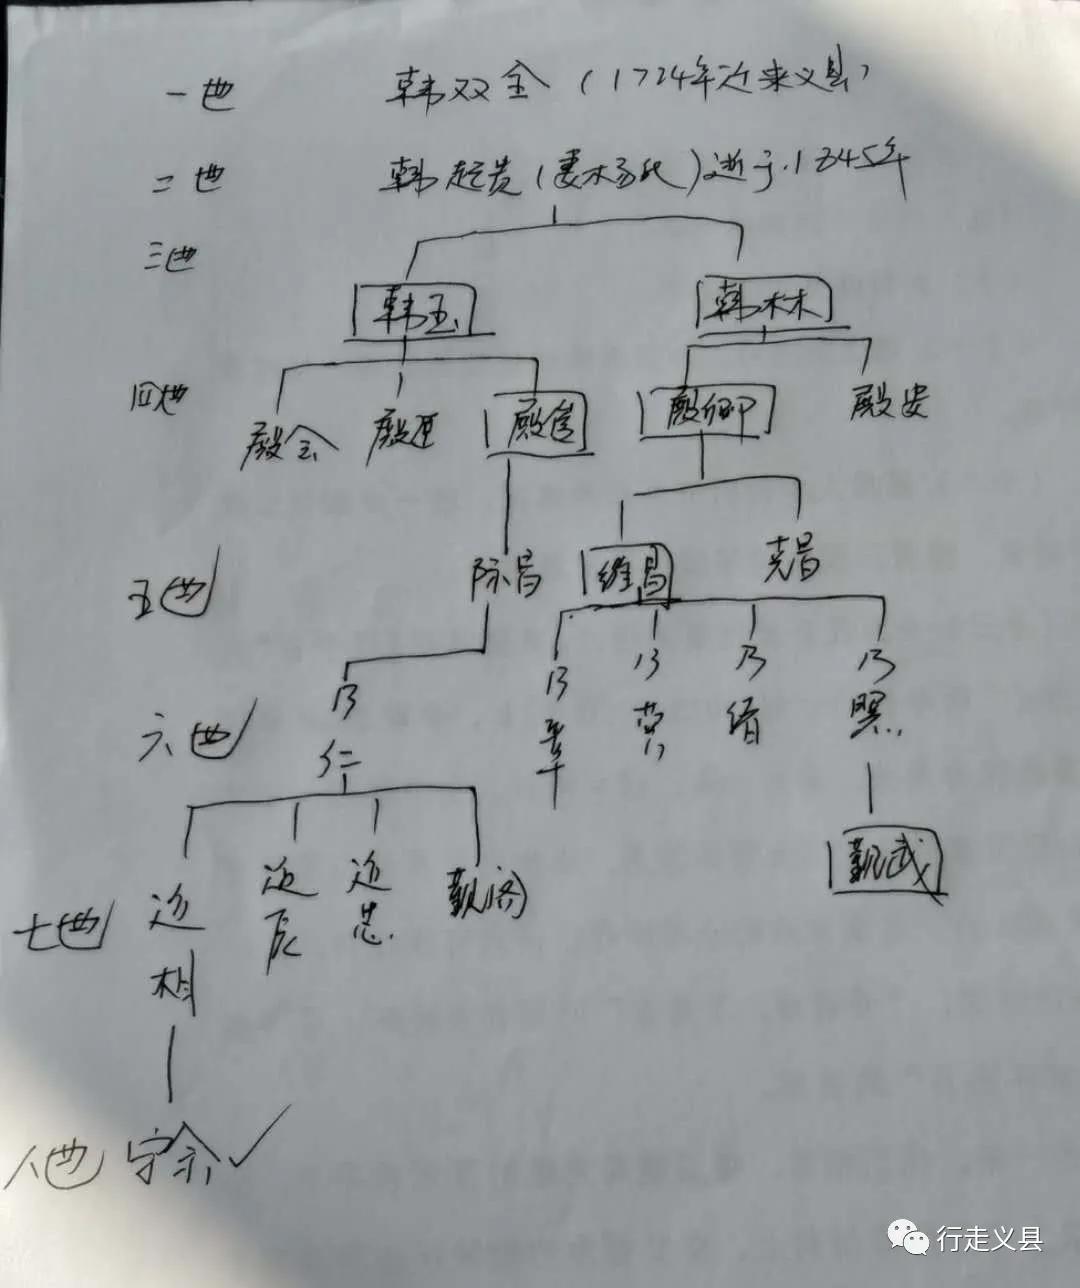 一世 韩双全(1724年迁来义县)
二世 韩起贵(妻杨氏)逝于.1845年
三世
韩玉 韩林
四世 殿 殿 殿 殿卿 殿安
五世 际昌 维昌 克昌
六世 乃仁 乃章 乃 乃绪 乃照
七世 迎相 迎辰 迎 觐阁 觐武
八世 守余
行走义县